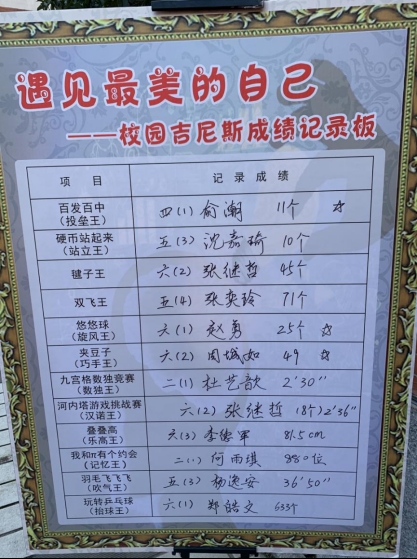 遇见最美的自己
——校园吉尼斯成绩记录板
项 目 记 录 成 绩
百发百中
(投垒王) 四(1) 俞潮 11个 ☆
硬币站起来
(站立王) 五(3) 沈嘉瑜 10个
毽子王 六(2) 张继哲 45个
双飞王 五(4) 张奕玲 71个
悠悠球
(旋风王) 六(1) 赵勇 25个 ☆
夹豆子
(巧手王) 六(2) 周城如 49 ☆
九宫格数独竞赛
(数独王) 二(1) 杜艺歆 2'30"
河内塔游戏挑战赛
(汉诺王) 六(2) 张继哲 (8个)2'36"
叠叠高
(乐高王) 六(3) 李德军 81.5cm
我和π有个约会
(记忆王) 二(1) 何雨琪 880位
羽毛飞飞飞
(吹气王) 五(3) 杨逸安 36'50"
玩转乒乓球
(抬球王) 六(1) 郑皓文 633个